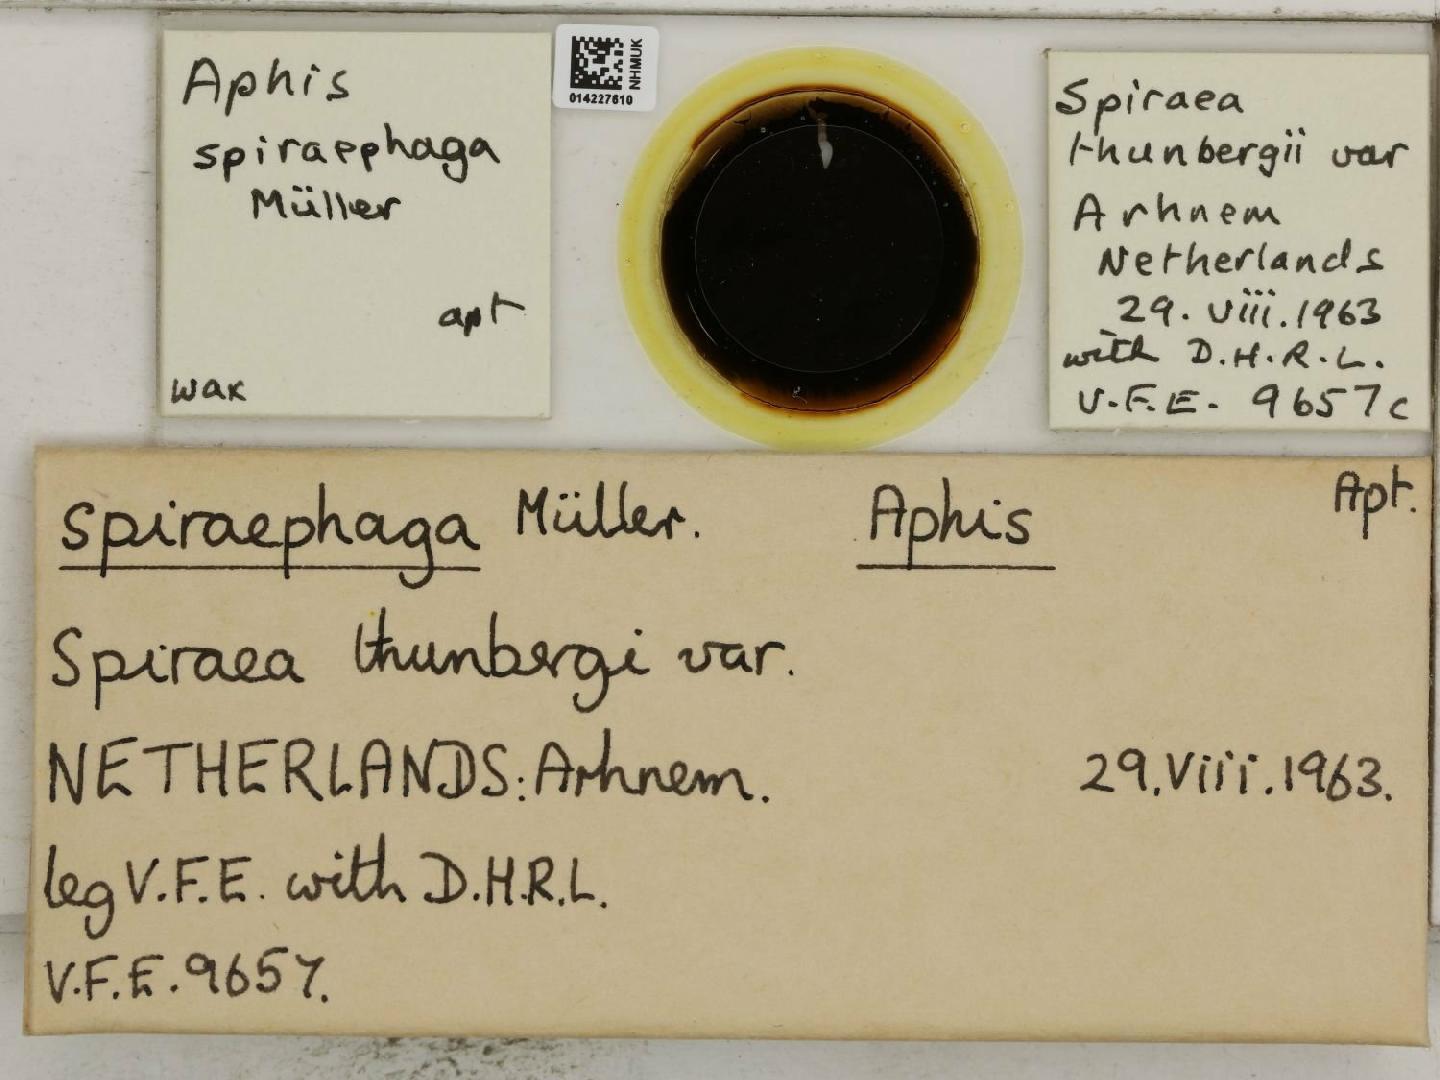 Aphis
spiraephaga
Müller
apt
wax
NHMUK
014227610
Spiraea
thunbergii var
Arhnem
Netherlands
29. viii. 1963
with D.H.R.L.
V.F.E. 9657c
spiraephaga Müller. Aphis Apt.
Spiraea thunbergi var.
NETHERLANDS: Arhnem. 29. Viii. 1963.
leg V.F.E. with D.H.R.L.
V.F.E. 9657.